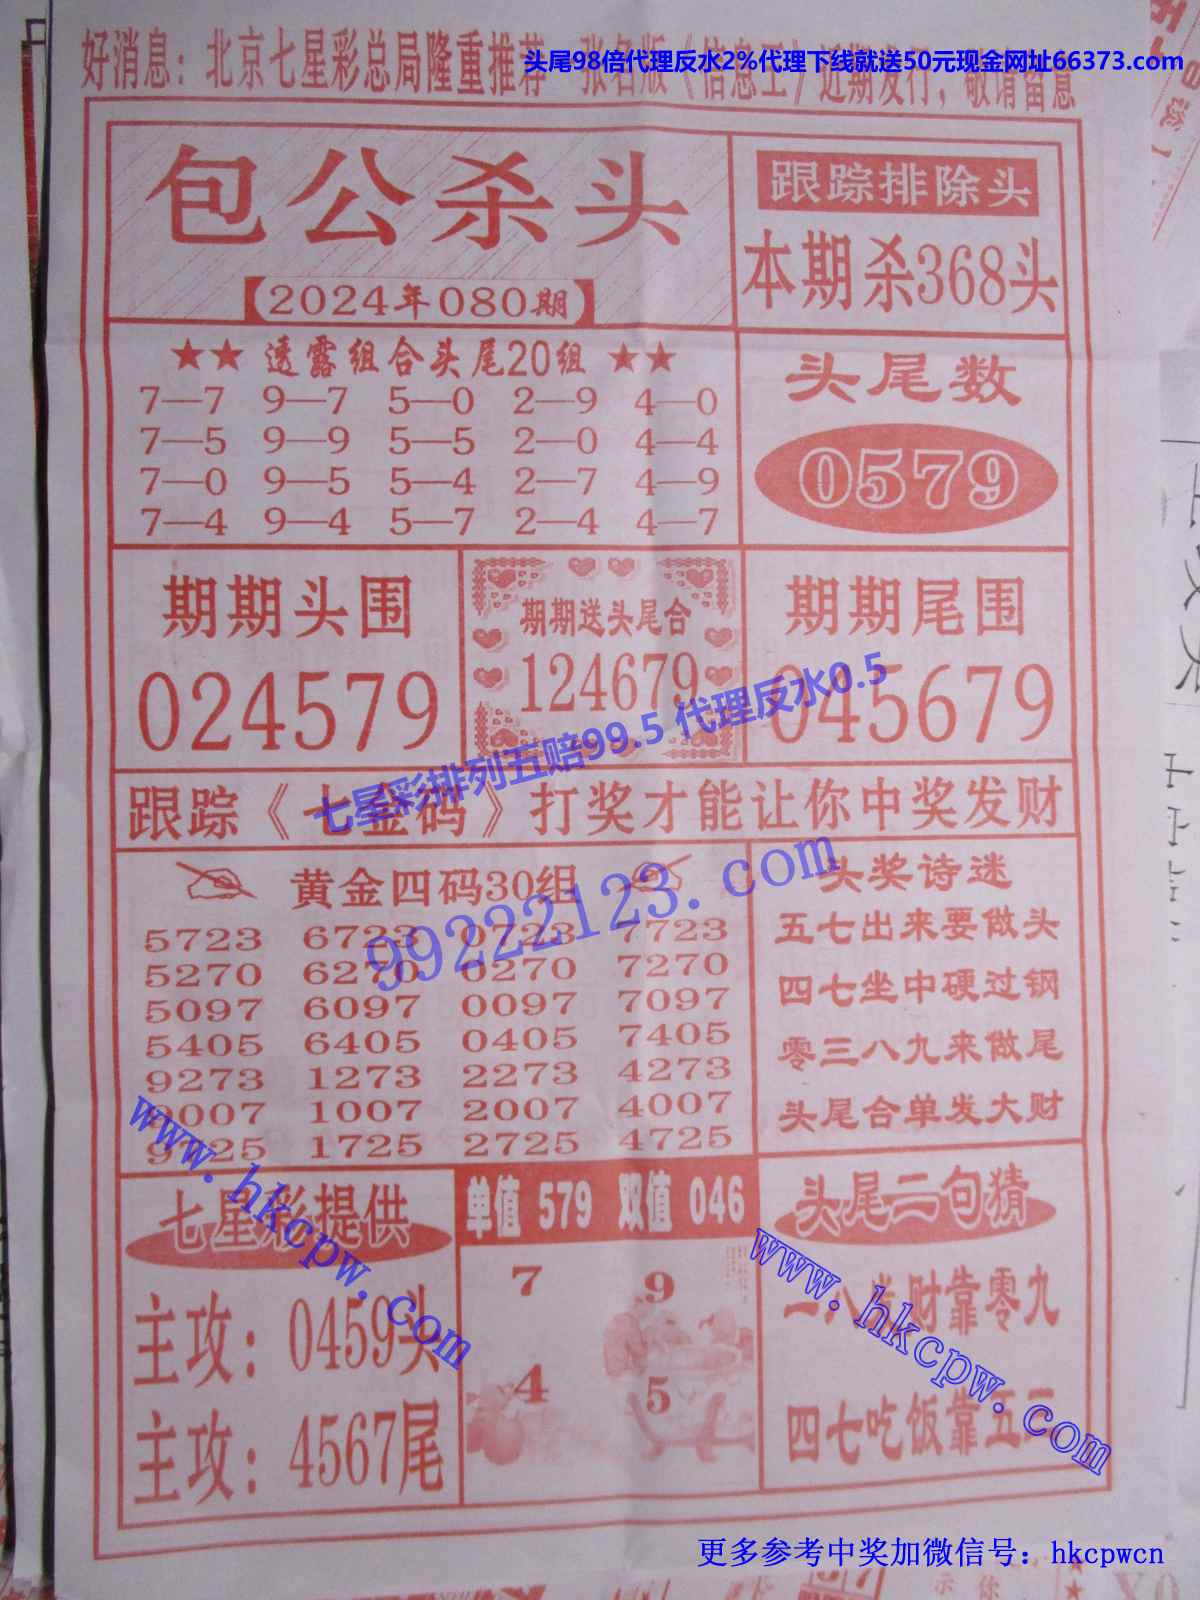 头尾98倍代理反水2%代理下线就送50元现金网址66373.com
好消息：北京七星彩总局隆重推荐 张名版《信息王》近期发行，敬请留意
包公杀头
【2024年080期】
跟踪排除头
本期杀368头
★★ 透露组合头尾20组 ★★
7—7 9—7 5—0 2—9 4—0
7—5 9—9 5—5 2—0 4—4
7—0 9—5 5—4 2—7 4—9
7—4 9—4 5—7 2—4 4—7
头尾数
0579
期期头围
024579
期期送头尾合
124679
期期尾围
045679
七星彩排列五赔99.5 代理反水0.5
跟踪《七金码》打奖才能让你中奖发财
黄金四码30组
5723 6723 0723 7723
5270 6270 0270 7270
5097 6097 0097 7097
5405 6405 0405 7405
9273 1273 2273 4273
9007 1007 2007 4007
9725 1725 2725 4725
99222123.com
头奖诗迷
五七出来要做头
四七坐中硬过钢
零三八九来做尾
头尾合单发大财
www.hkcpw.com
七星彩提供
主攻：0459头
主攻：4567尾
单值 579 双值 046
7 9
4 5
头尾二句猜
一八发财靠零九
四七吃饭靠五
www.hkcpw.com
更多参考中奖加微信号：hkcpwcn